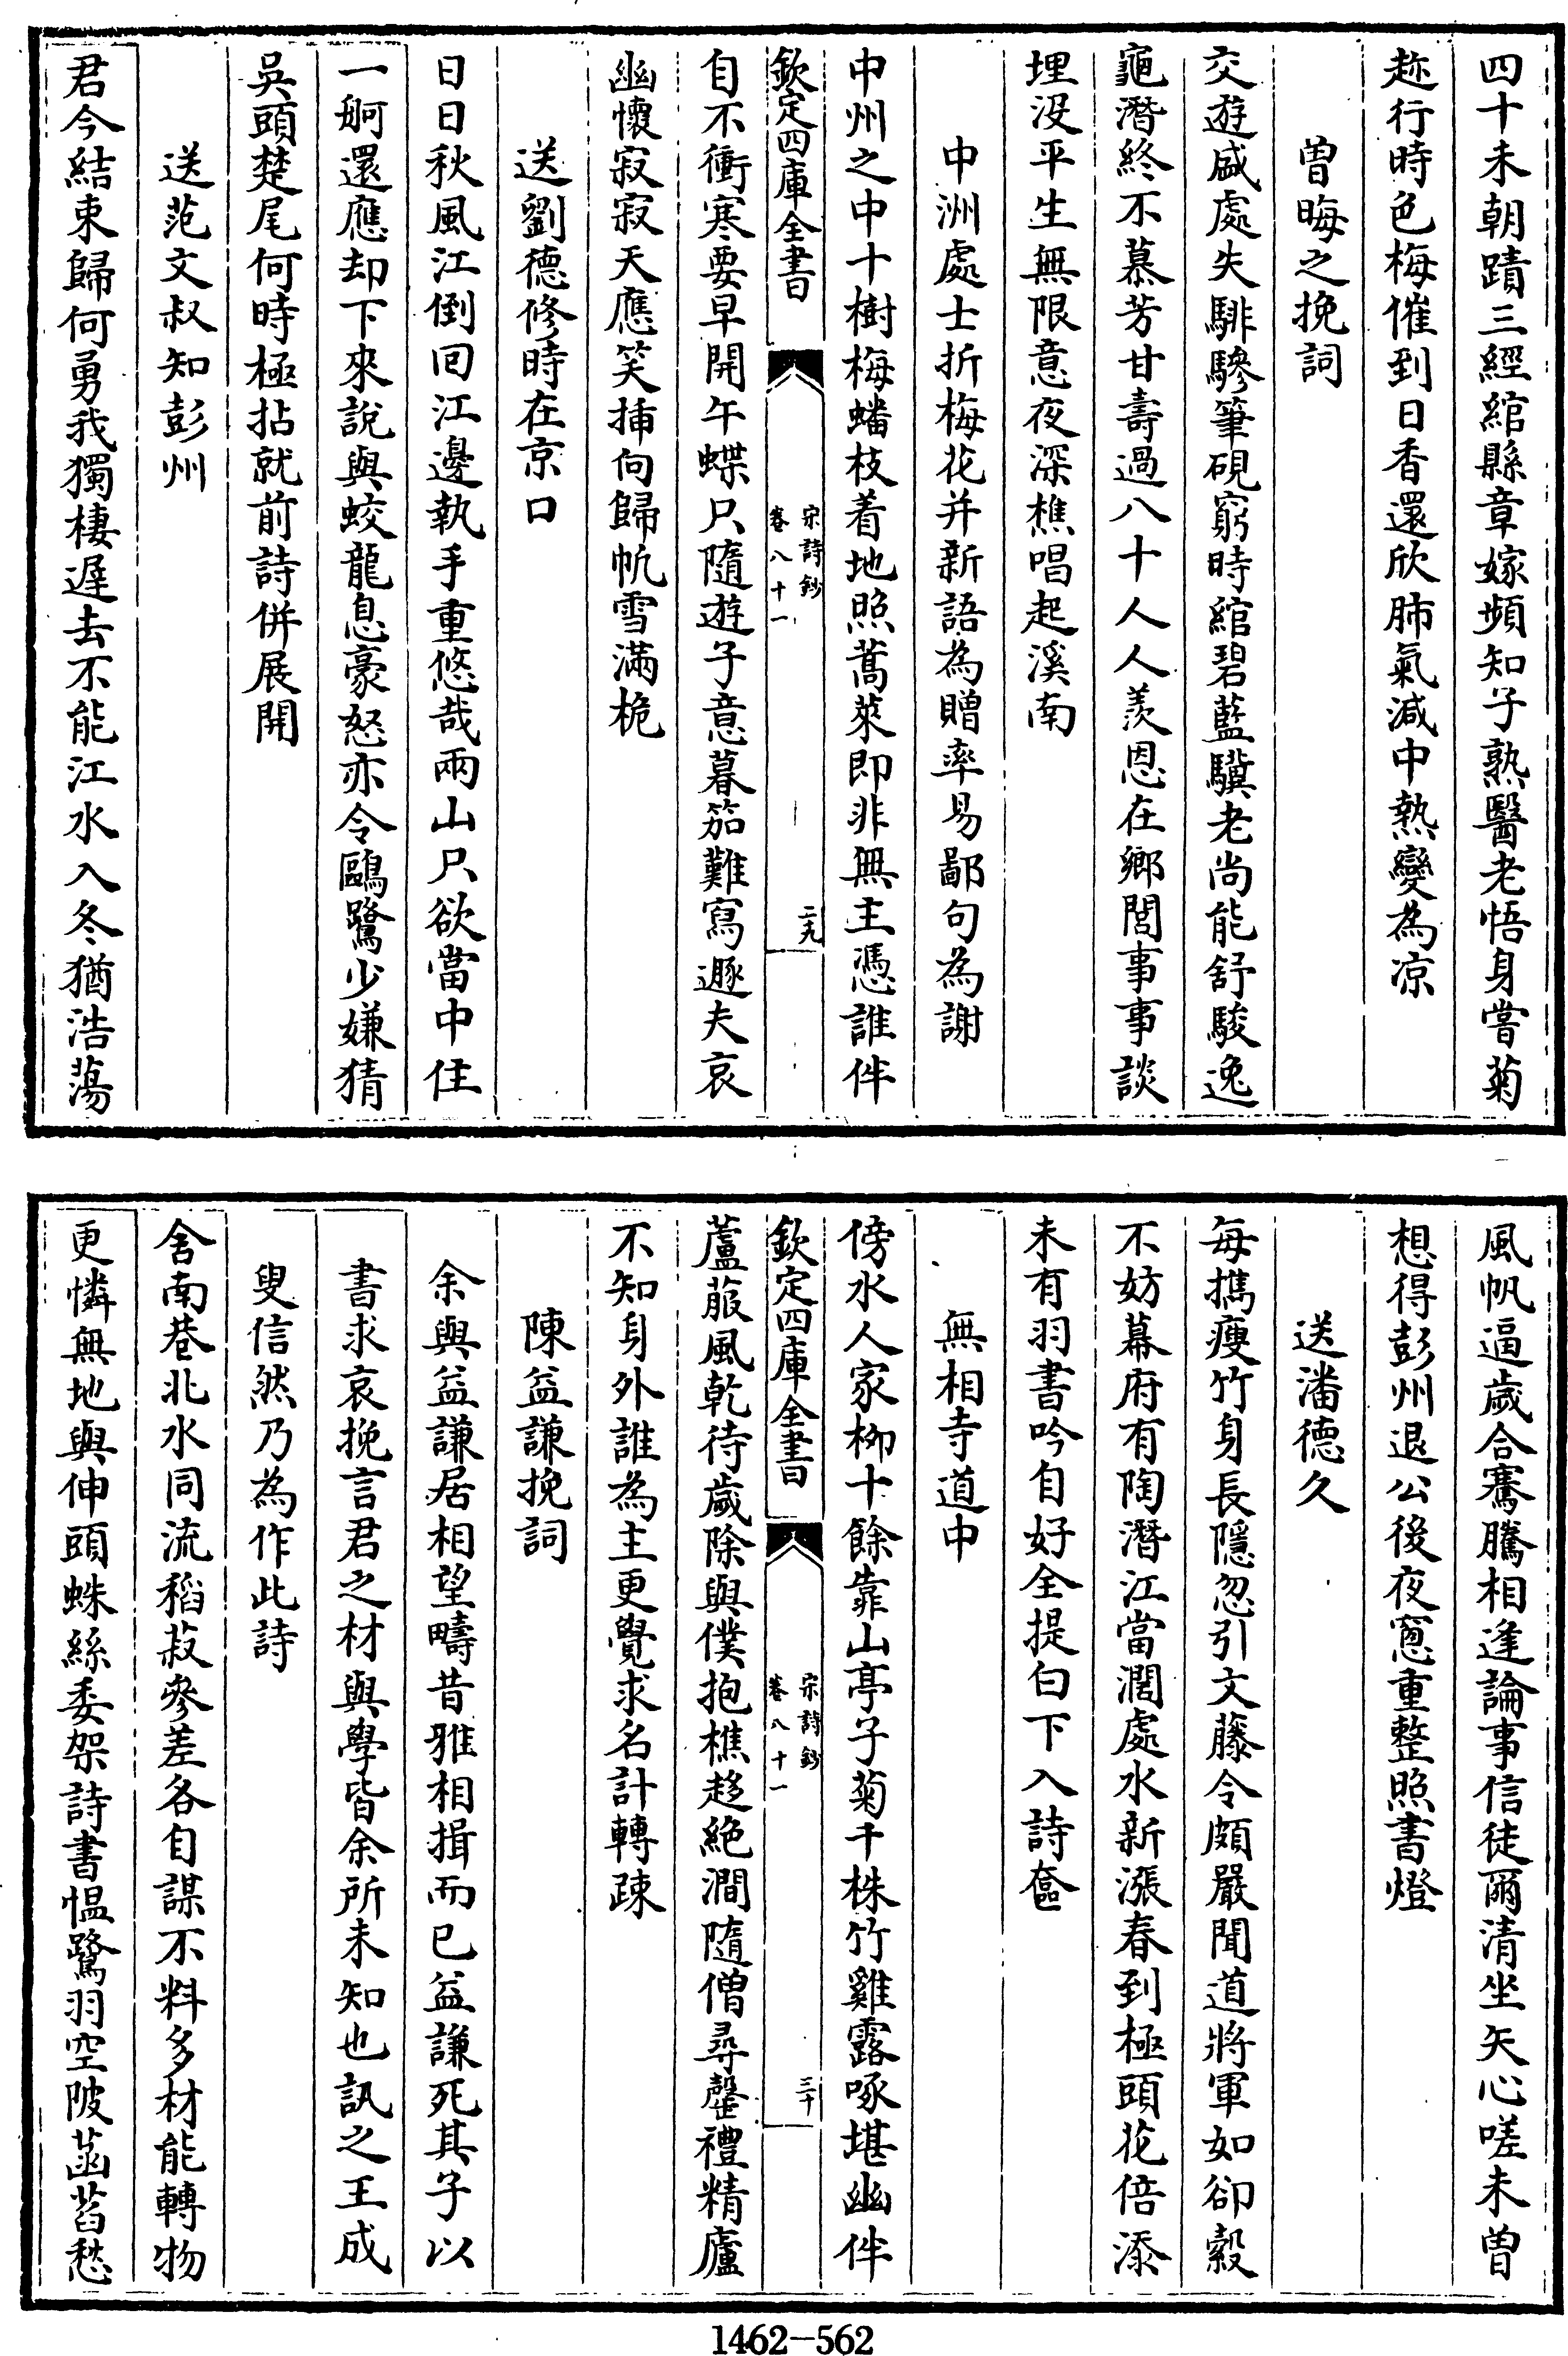 四十未朝蹟三經綰縣章嫁頻知子熟醫老悟身嘗菊
趂行時色梅催到日香還欣肺氣減中熱變為凉
曾晦之挽詞
交遊盛處失騑驂筆硯窮時綰碧藍驥老尚能舒駿逸
龜潛終不慕芳甘壽過八十人人羨恩在鄉閭事事談
埋沒平生無限意夜深樵唱起溪南
中洲處士折梅花并新語為贈率易鄙句為謝
中州之中十樹梅蟠枝着地照蒿萊即非無主憑誰伴
欽定四庫全書
宋詩鈔
卷八十一
二九
自不衝寒要早開午蝶只隨遊子意暮笳難寫遯夫哀
幽懷寂寂天應笑揷向歸帆雪滿桅
送劉德修時在京口
日日秋風江倒回江邊執手重悠哉兩山只欲當中住
一舸還應却下來說與蛟龍息豪怒亦令鷗鷺少嫌猜
吳頭楚尾何時極拈就前詩併展開
送范文叔知彭州
君今結束歸何勇我獨棲遲去不能江水入冬猶浩蕩
風帆逼歲合騫騰相逢論事信徒爾清坐矢心嗟未曾
想得彭州退公後夜窻重整照書燈
送潘德久
每擕瘦竹身長隱忽引文藤令頗嚴聞道將軍如卻縠
不妨幕府有陶潛江當濶處水新漲春到極頭花倍添
未有羽書吟自好全提白下入詩奩
無相寺道中
傍水人家柳十餘靠山亭子菊千株竹雞露啄堪幽伴
欽定四庫全書
宋詩鈔
卷八十一
三十
蘆菔風乾待歲除與僕抱樵趍絶澗隨僧尋罄禮精廬
不知身外誰為主更覺求名計轉疎
陳益謙挽詞
余與益謙居相望疇昔雅相揖而已益謙死其子以
書求哀挽言君之材與學皆余所未知也訊之王成
叟信然乃為作此詩
舍南巷北水同流稻菽參差各自謀不料多材能轉物
更憐無地與伸頭蛛絲委架詩書愠鷺羽空陂菡萏愁
1462-562